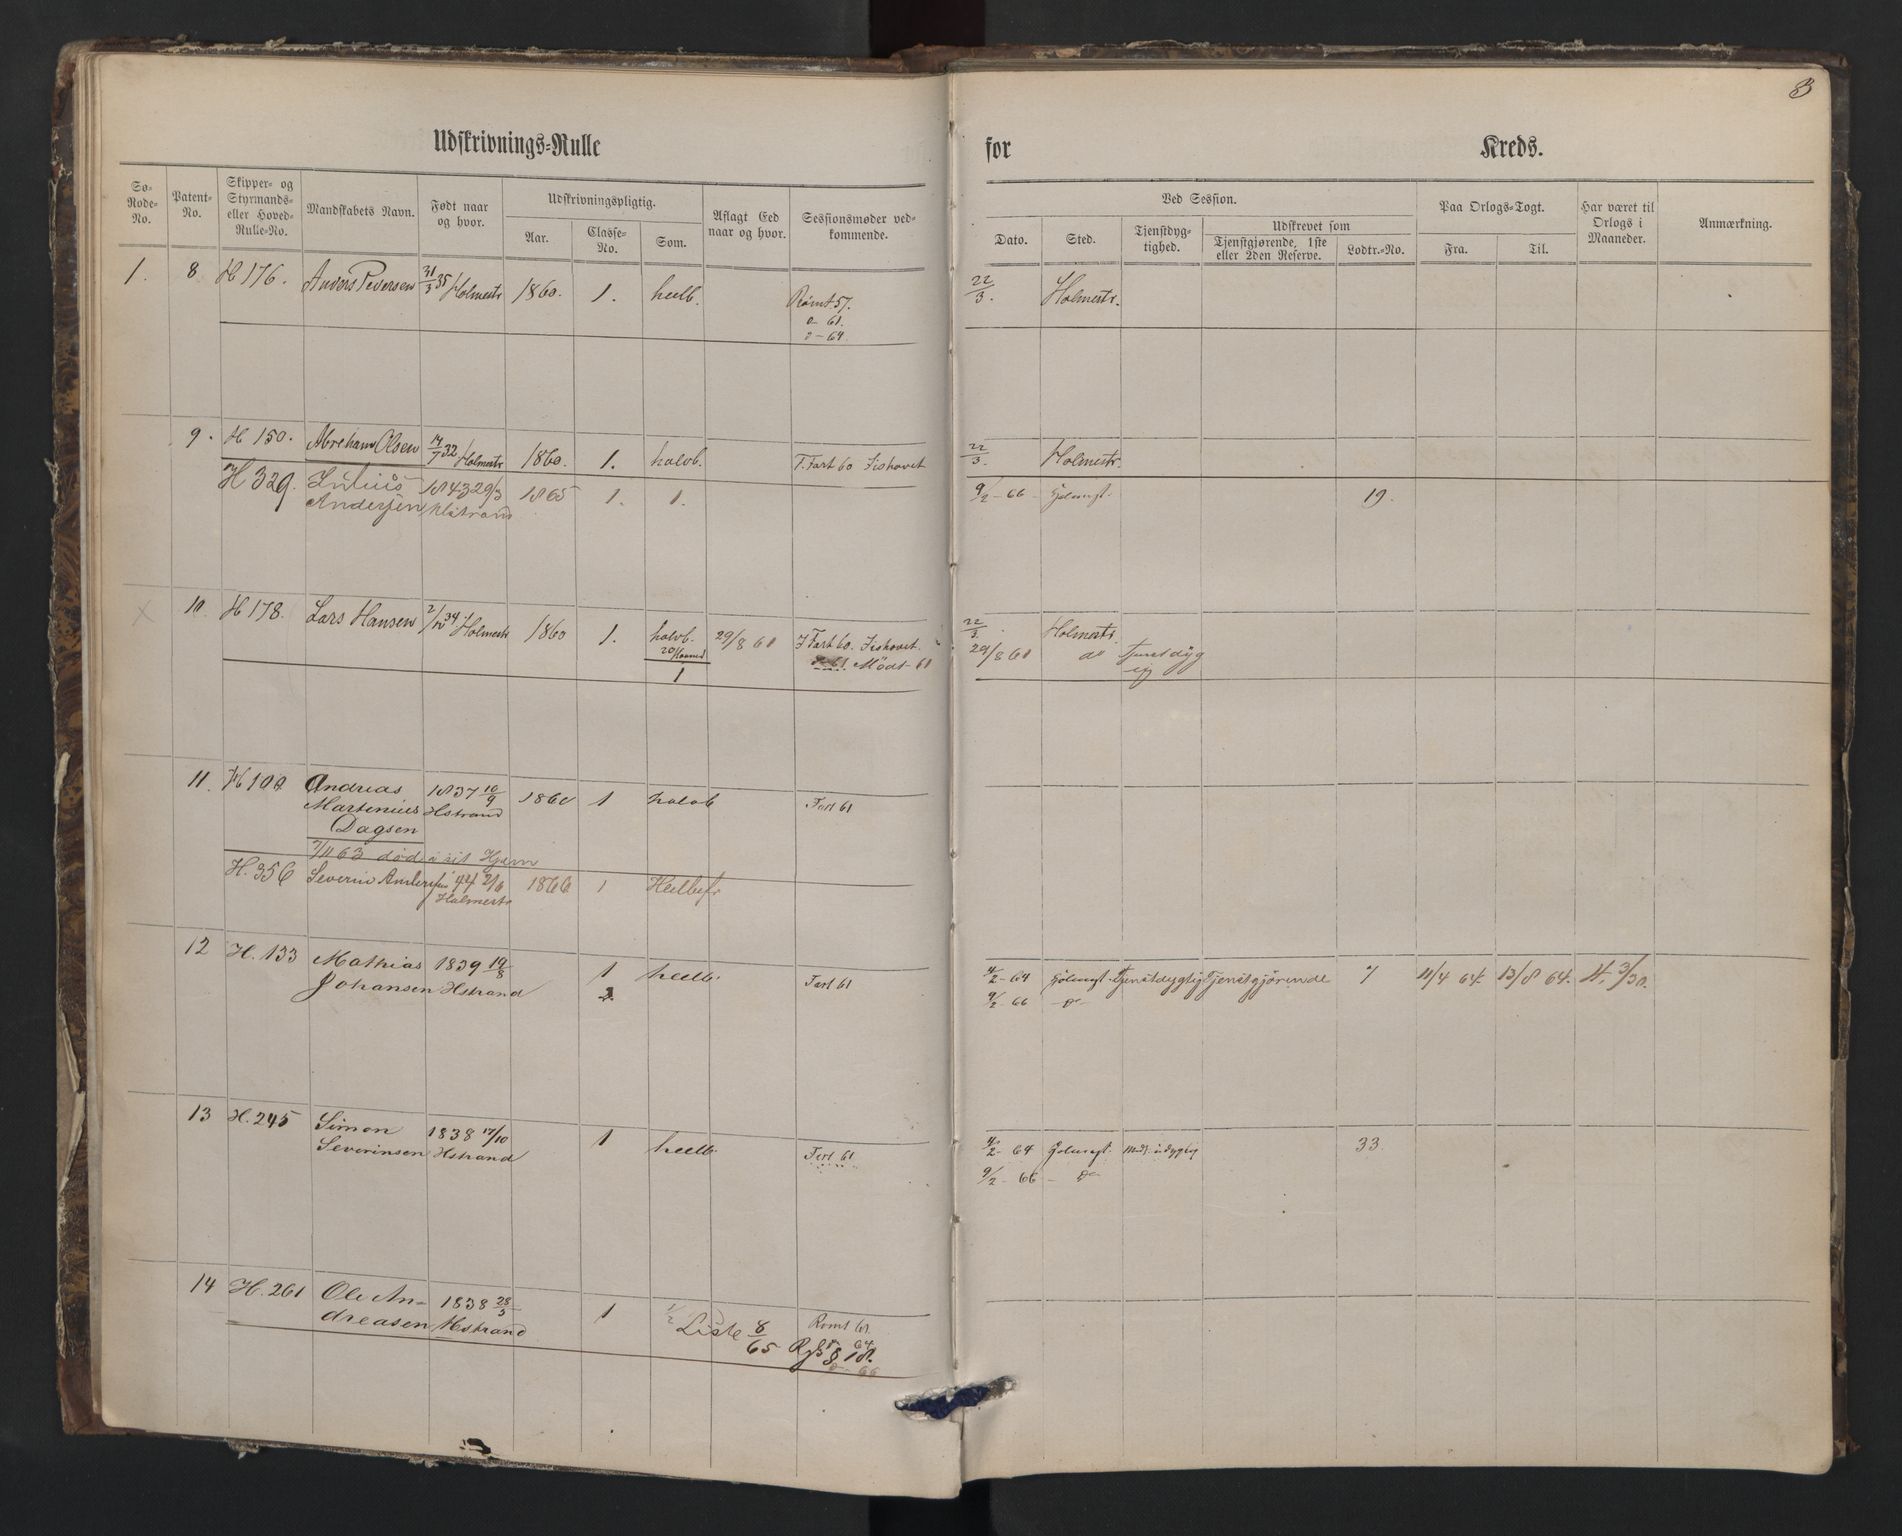 8
Udskrivnings-Rulle for Kreds.
Sø-Rode-No. Patent-No. Skipper- og Styrmands- eller Hoved-Rulle-No. Mandskabets Navn. Født naar og hvor. Udskrivningspligtig. Aar. Classe-No. Som. Aflagt Eed naar og hvor. Sessionsmøder vedkommende.
Ved Session. Dato. Sted. Tjenstdygtighed. Udskrevet som Tjenstgjørende, 1ste eller 2den Reserve. Lodtr.-No. Paa Orlogs-Togt. Fra. Til. Har været til Orlogs i Maaneder. Anmærkning.
1. 8 H 176. Anders Pedersen 31/3 35 Holmestr 1860. 1. heelb. Rømt 57. 22/3. Holmestr.
o- 61.
o- 64.
9. H 150. Abreham Olsen 14/7 32 Holmestr 1860. 1. halvb. T. Fart 60 Fishovet 22/3. Holmestr.
H 329. Julius 1843 29/3 1865 1. 1. 9/2-66 19.
Andersen Hstrand
10. H 178. Lars Hansen 2/12 34 Holmestr 1860 1. halvb. 29/8 61 T Fart 60. Fishovet. 22/3. Holmestr.
Mødt 61 29/8 61 do Tjenstdyg
1 ej
11. H 100 Andreas 1837 10/9 1860 1 halvb Fart 61
Martenius Hstrand
Dagsen
7/11 63 død i sit Hjem
H. 356 Severin Andersen 44 2/6 1866 1 Heelbef.
Holmestr
12 H. 133 Mathias 1839 19/8 1 heelb. Fart 61 4/2-64 Tjenstdygtig Tjenstgjørende 7 11/4 64. 13/8 64. 4. 3/30.
Johansen Hstrand 2. 9/2-66 -do-
13 H. 245 Simon 1838 17/10 1 heelb. Fart 61 4/2-64 33
Severinsen Hstrand 9/2-66 -do-
14 H. 261 Ole An- 1838 28/3 1 1/2 Liste 8/65 Rømt 61.
dreasen Hstrand 64
66